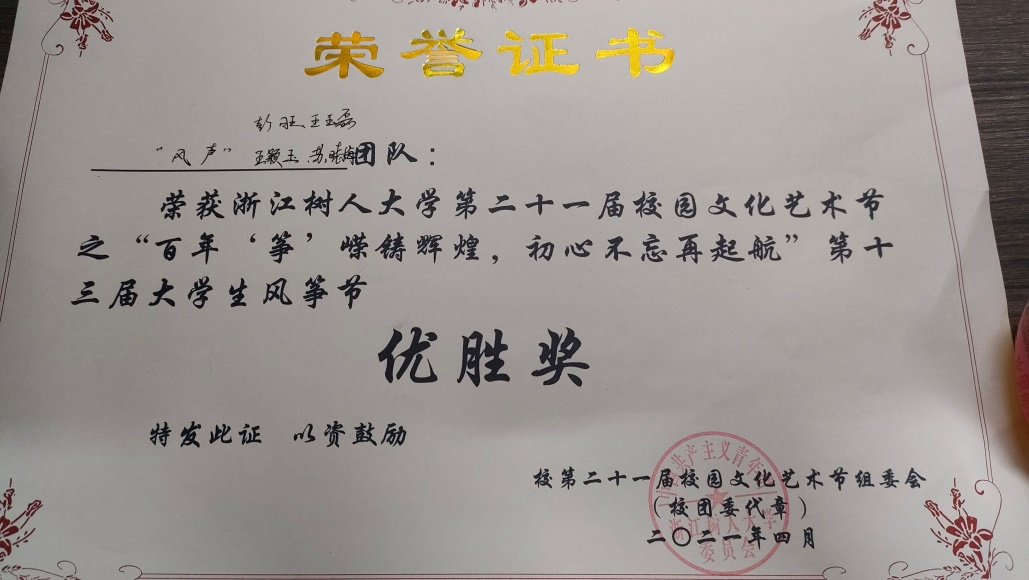 荣誉证书
彭旺、王玉磊
“风声” 王颖玉、苏晓梅 团队：
荣获浙江树人大学第二十一届校园文化艺术节
之“百年‘筝’嵘铸辉煌，初心不忘再起航”第十
三届大学生风筝节
优胜奖
特发此证 以资鼓励
校第二十一届校园文化艺术节组委会
（校团委代章）
二〇二一年四月
共产主义青年
浙江树人大学
委员会